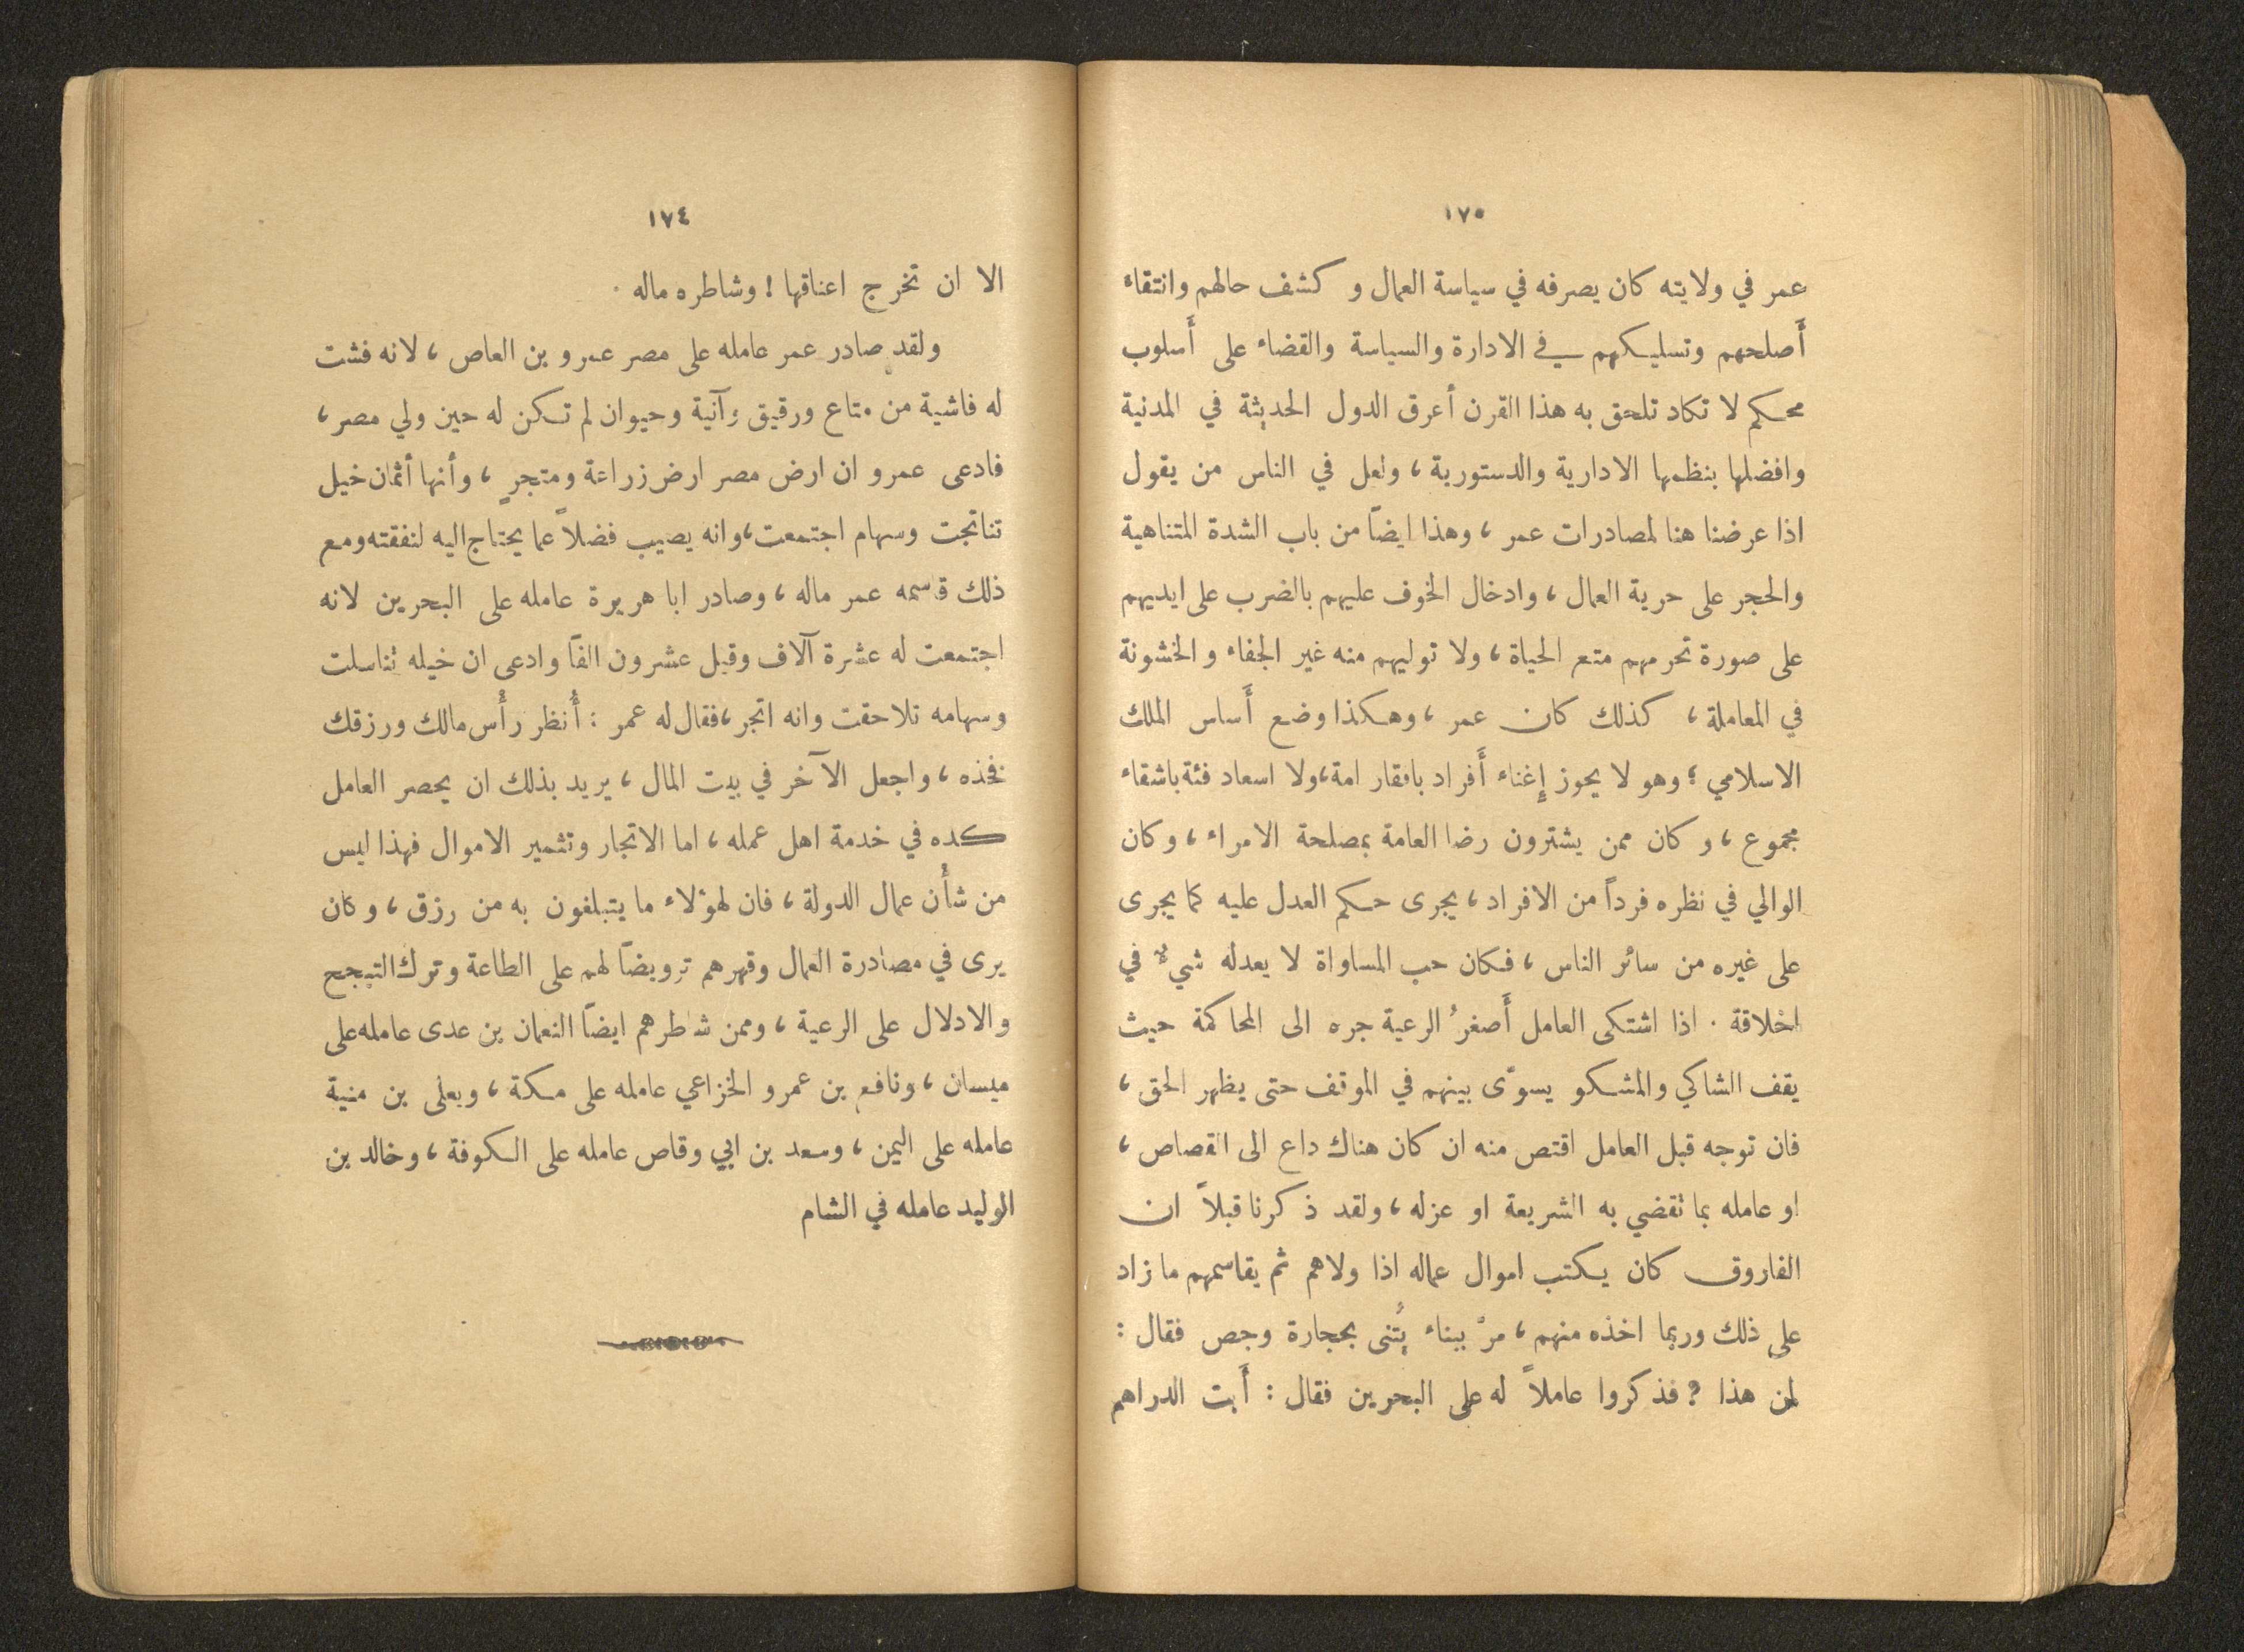 ١٧٥
عمر في ولايته كان يصرفه في سياسة العمال و كشف حالهم وانتقاء
أَصلحهم وتسليكهم في الادارة والسياسة والقضاء على أَسلوب
محكم لا تكاد تلحق به هذا القرن أعرق الدول الحديثة في المدنية
وافضلها بنظمها الادارية والدستورية ، ولعل في الناس من يقول
اذا عرضنا هنا لمصادرات عمر ، وهذا ايضاً من باب الشدة المتناهية
والحجر على حرية العمال ، وادخال الخوف عليهم بالضرب على ايديهم
على صورة تحرمهم متع الحياة ، ولا توليهم منه غير الجفاء والخشونة
في المعاملة ، كذلك كان عمر ، وهكذا وضع أَساس الملك
الاسلامي ؛ وهو لا يجوز إِغناء أَفراد بافقار امة ، ولا اسعاد فئة باشقاء
مجموع ، وكان ممن يشترون رضا العامة بمصلحة الامراء ، وكان
الوالي في نظره فرداً من الافراد ، يجرى حكم العدل عليه كما يجرى
على غيره من سائر الناس ، فكان حب المساواة لا يعدله شيءٌ في
اخلاقة . اذا اشتكى العامل أَصغرُ الرعية جره الى المحاكمة حيث
يقف الشاكي والمشكو يسوّى بينهم في الموقف حتى يظهر الحق ،
فان توجه قبل العامل اقتص منه ان كان هناك داع الى القصاص ،
او عامله بما تقضي به الشريعة او عزله ، ولقد ذكرنا قبلاً ان
الفاروق كان يكتب اموال عماله اذا ولاهم ثم يقاسمهم ما زاد
على ذلك وربما اخذه منهم ، مرّ ببناء يُبنى بحجارة وجص فقال :
لمن هذا ? فذكروا عاملاً له على البحرين فقال : أَبت الدراهم
١٧٤
الا ان تخرج اعناقها ! وشاطره ماله .
ولقد صادر عمر عامله على مصر عمرو بن العاص ، لانه فشت
له فاشية من متاع ورقيق وآنية وحيوان لم تكن له حين ولي مصر ،
فادعى عمرو ان ارض مصر ارض زراعة ومتجرٍ ، وأنها أثمان خيل
تناتجت وسهام اجتمعت ، وانه يصيب فضلاً عما يحتاج اليه لنفقته ومع
ذلك قاسمه عمر ماله ، وصادر ابا هريرة عامله على البحرين لانه
اجتمعت له عشرة آلاف وقيل عشرون الفاً وادعى ان خيله تناسلت
وسهامه تلاحقت وانه اتجر ، فقال له عمر : أُنظر رأْس مالك ورزقك
فخذه ، واجعل الآخر في بيت المال ، يريد بذلك ان يحصر العامل
كده في خدمة اهل عمله ، اما الاتجار وتثمير الاموال فهذا ليس
من شأْن عمال الدولة ، فان لهؤلاء ما يتبلغون به من رزق ، وكان
يرى في مصادرة العمال وقهرهم ترويضاً لهم على الطاعة وترك التبجح
والادلال على الرعية ، وممن شاطرهم ايضاً النعمان بن عدى عامله على
ميسان ، ونافع بن عمرو الخزاعي عامله على مكة ، ويعلى بن منية
عامله على اليمن ، وسعد بن ابي وقاص عامله على الكوفة ، وخالد بن
الوليد عامله في الشام